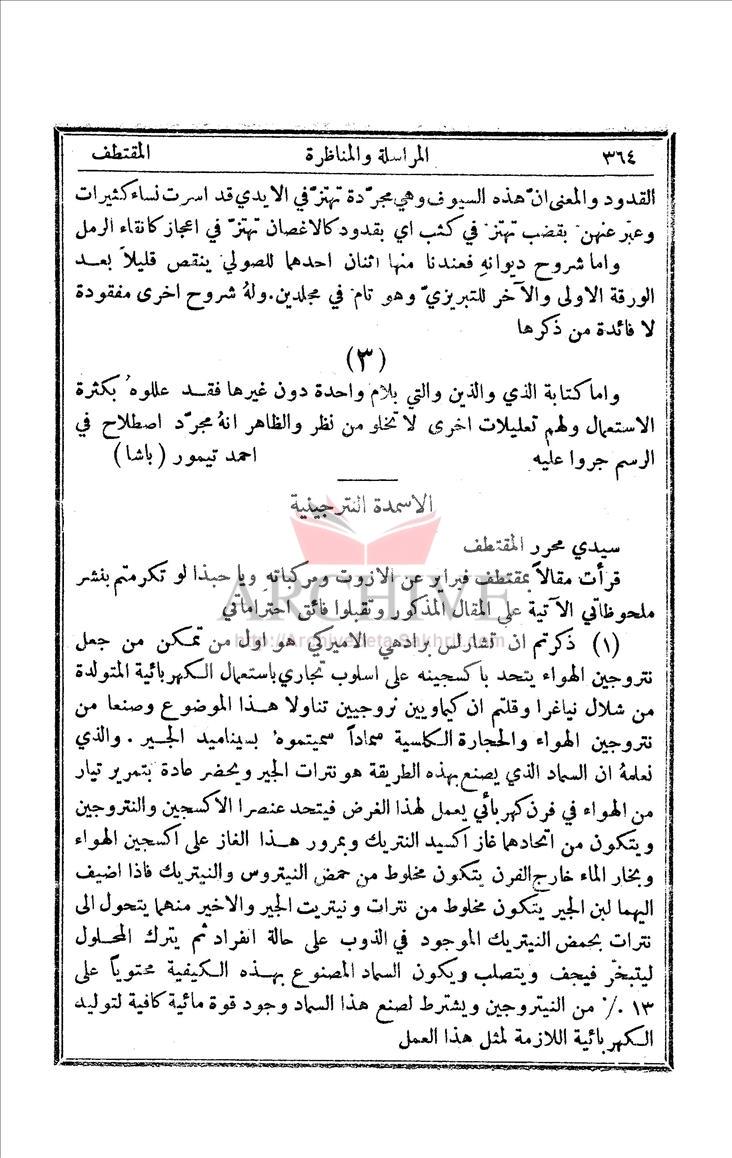 ٣٦٤ المراسلة والمناظرة المقتطف
القدود والمعنى انّ هذه السيوف وهي مجرّدة تهتزّ في الايدي قد اسرت نساء كثيرات
وعبّر عنهن بقضب تهتز في كثب اي بقدود كالاغصان تهتزّ في اعجاز كانقاء الرمل
واما شروح ديوانهِ فعندنا منها اثنان احدهما للصولي ينقص قليلاً بعد
الورقة الاولى والآخر للتبريزيّ وهو تام في مجلدين. ولهُ شروح اخرى مفقودة
لا فائدة من ذكرها
(٣)
واما كتابة الذي والذين والتي بلام واحدة دون غيرها فقد عللوهُ بكثرة
الاستعمال ولهم تعليلات اخرى لا تخلو من نظر والظاهر انهُ مجرّد اصطلاح في
الرسم جروا عليه احمد تيمور (باشا)
الاسمدة النترجينية
سيدي محرر المقتطف
قرأت مقالاً بمقتطف فبراير عن الازوت ومركباتهِ ويا حبذا لو تكرمتم بنشر
ملحوظاتي الآتية على المقال المذكور وتقبلوا فائق احتراماتي
ARCHIVE
http://Archivebeta.Sakhrit.com
(١) ذكرتم ان تشارلس برادهي الاميركي هو اول من تمكن من جعل
نتروجين الهواء يتحد باكسجينه على اسلوب تجاري باستعمال الكهربائية المتولدة
من شلال نياغرا وقلتم ان كيماويين نروجيين تناولا هذا الموضوع وصنعا من
نتروجين الهواء والحجارة الكلسية سماداً سميتموهُ بسيناميد الجير. والذي
نعلمهُ ان السماد الذي يصنع بهذه الطريقة هو نترات الجير ويحضر عادة بتمرير تيار
من الهواء في فرن كهربائي يعمل لهذا الغرض فيتحد عنصرا الاكسجين والنتروجين
ويتكون من اتحادهما غاز اكسيد النتريك وبمرور هذا الغاز على اكسجين الهواء
وبخار الماء خارج الفرن يتكون مخلوط من حمض النيتروس والنيتريك فاذا اضيف
اليهما لبن الجير يتكون مخلوط من نترات ونيتريت الجير والاخير منهما يتحول الى
نترات بحمض النيتريك الموجود في الذوب على حالة انفراد ثم يترك المحلول
ليتبخّر فيجف ويتصلب ويكون السماد المصنوع بهذه الكيفية محتوياً على
١٣ ٪ من النيتروجين ويشترط لصنع هذا السماد وجود قوة مائية كافية لتوليد
الكهربائية اللازمة لمثل هذا العمل